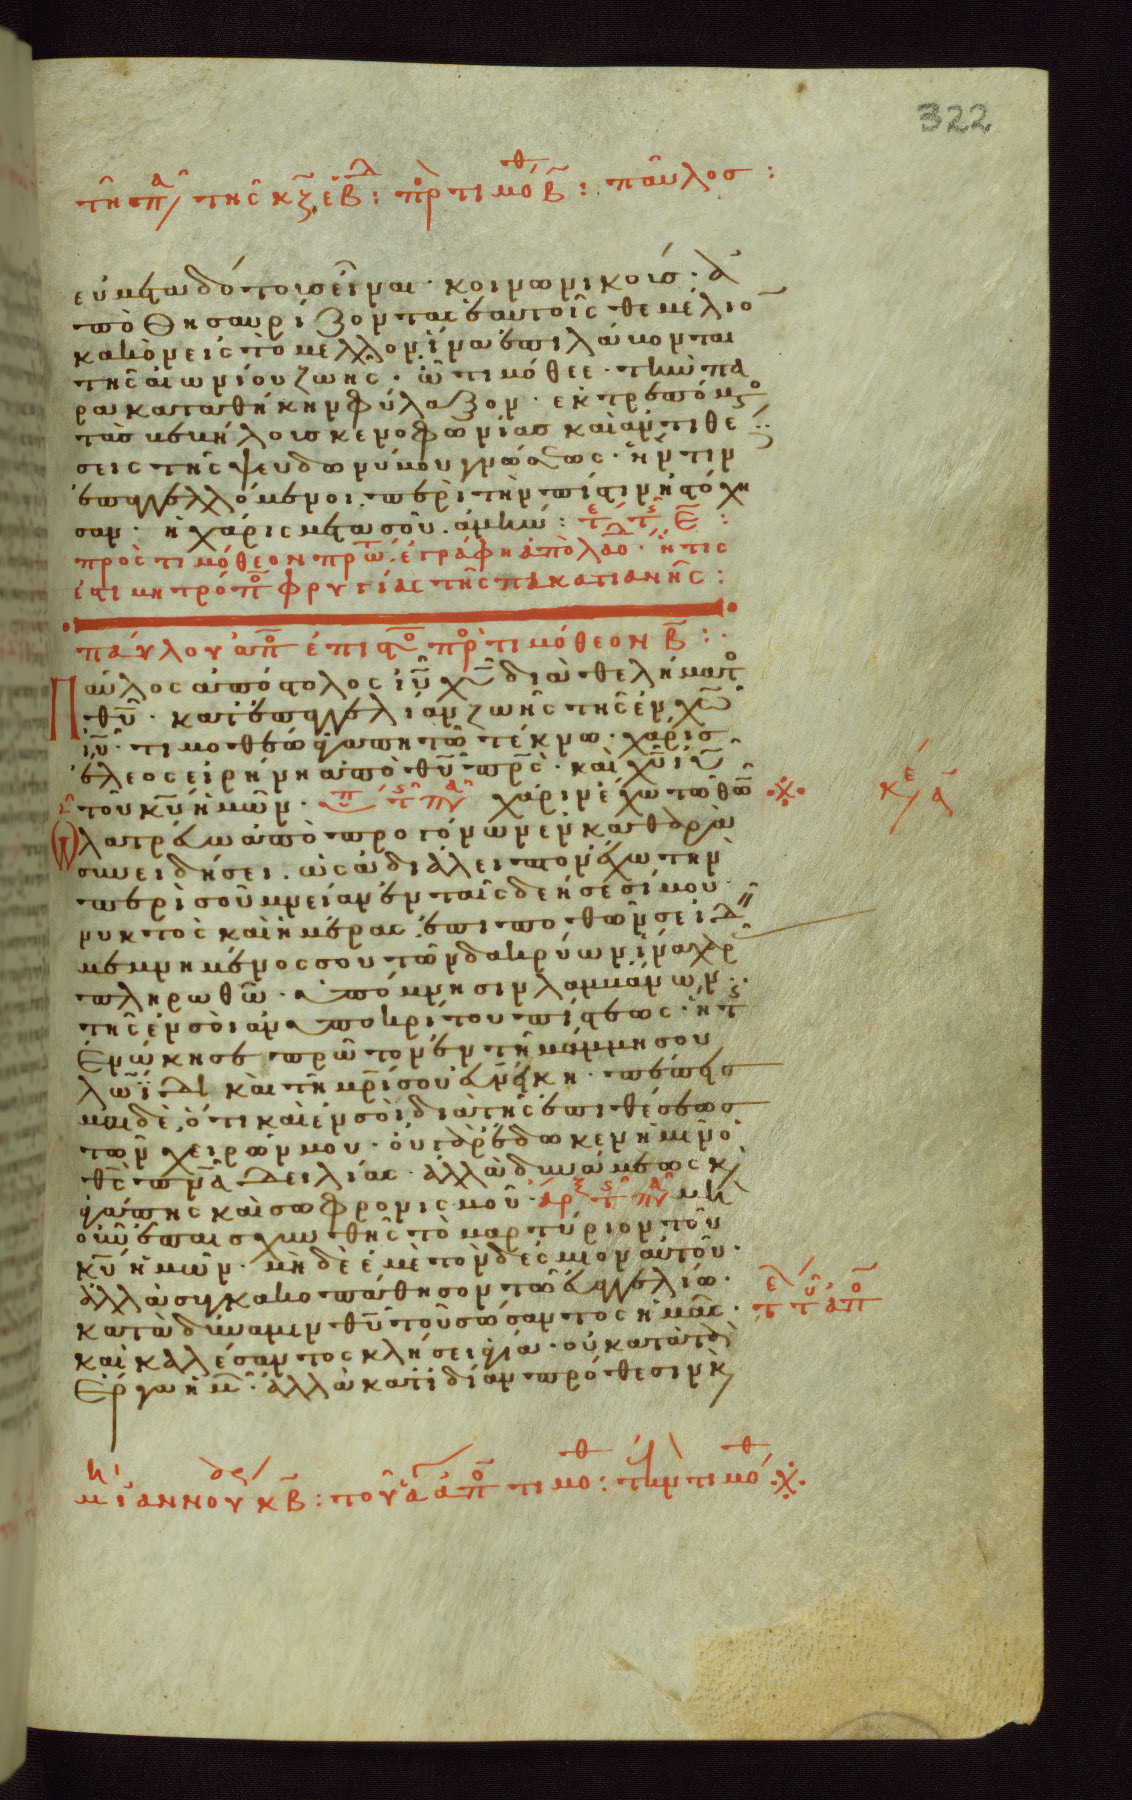 322
τῆ παρ τῆς κζ ἑβδ : πρ τιμόθ β : παῦλος :
εὐμεταδότους εἶναι · κοινωνικούς · ἀ
ποθησαυρίζοντας ἑαυτοῖς θεμέλιον
καλὸν εἰς τὸ μέλλον ἵνα ἐπιλάβωνται
τῆς αἰωνίου ζωῆς · ὦ τιμόθεε · τὴν πα
ρακαταθήκην φύλαξον · ἐκτρεπόμενος
τὰς βεβήλους κενοφωνίας καὶ ἀντιθέ
σεις τῆς ψευδωνύμου γνώσεως · ἥν τινες
ἐπαγγελλόμενοι περὶ τὴν πίστιν ἠστόχη
σαν · ἡ χάρις μετα σοῦ · ἀμήν :
πρὸς τιμόθεον πρώτ · ἐγράφη ἀπὸ λαοδ · ἥτις
ἐστὶ μητρόπο φρυγίας τῆς πακατιανῆς :
παύλου ἀπο ἐπιστο πρὸ τιμόθεον β :
Παῦλος ἀπόστολος ἰυ χυ διὰ θελήματο
θυ · κατ ἐπαγγελίαν ζωῆς τῆς ἐν χω
ιυ · τιμοθέω ἀγαπητῶ τέκνω · χάρις
ἔλεος εἰρήνη ἀπὸ θυ πρς · καὶ χυ ιυ
τοῦ κυ ἡμῶν · χάριν ἔχω τῶ θω
λατρεύω ἀπὸ προγόνων ἐν καθαρᾶ
συνειδήσει · ὡς ἀδιάλειπτον ἔχω τὴν
περὶ σοῦ μνείαν ἐν ταῖς δεήσεσί μου
νυκτὸς καὶ ἡμέρας ἐπιποθῶν σε ἰδ
μεμνημένος σου τῶν δακρύων ἵνα χαρ
πληρωθῶ · ὑπόμνησιν λαμβάνων
τῆς ἐν σοὶ ἀνυποκρίτου πίστεως · ἥτ
ἐνώκησε πρῶτον ἐν τῆ μάμμη σου
λωΐδι καὶ τῆ μρι σου εὐνίκη · πέπεισ
μαι δὲ ὅτι καὶ ἐν σοὶ διὰ τῆς ἐπιθέσεως
τῶν χειρῶν μου · οὐ γὰρ ἔδωκεν ἡμῖν ὁ
θς πνα δειλίας · ἀλλὰ δυνάμεως κ
ἀγάπης καὶ σωφρονισμοῦ · μὴ
οὖν ἐπαισχυνθῆς τὸ μαρτύριον τοῦ
κυ ἡμῶν · μὴ δὲ ἐμὲ τὸν δέσμιον αὐτοῦ ·
ἀλλὰ συγκακοπάθησον τῶ εὐαγγελίω ·
κατὰ δύναμιν θυ τοῦ σώσαντος ἡμᾶς ·
καὶ καλέσαντος κλήσει ἁγία · οὐ κατὰ τὰ
ἔργα ἡμ · ἀλλὰ κατ ἰδίαν πρόθεσιν κ